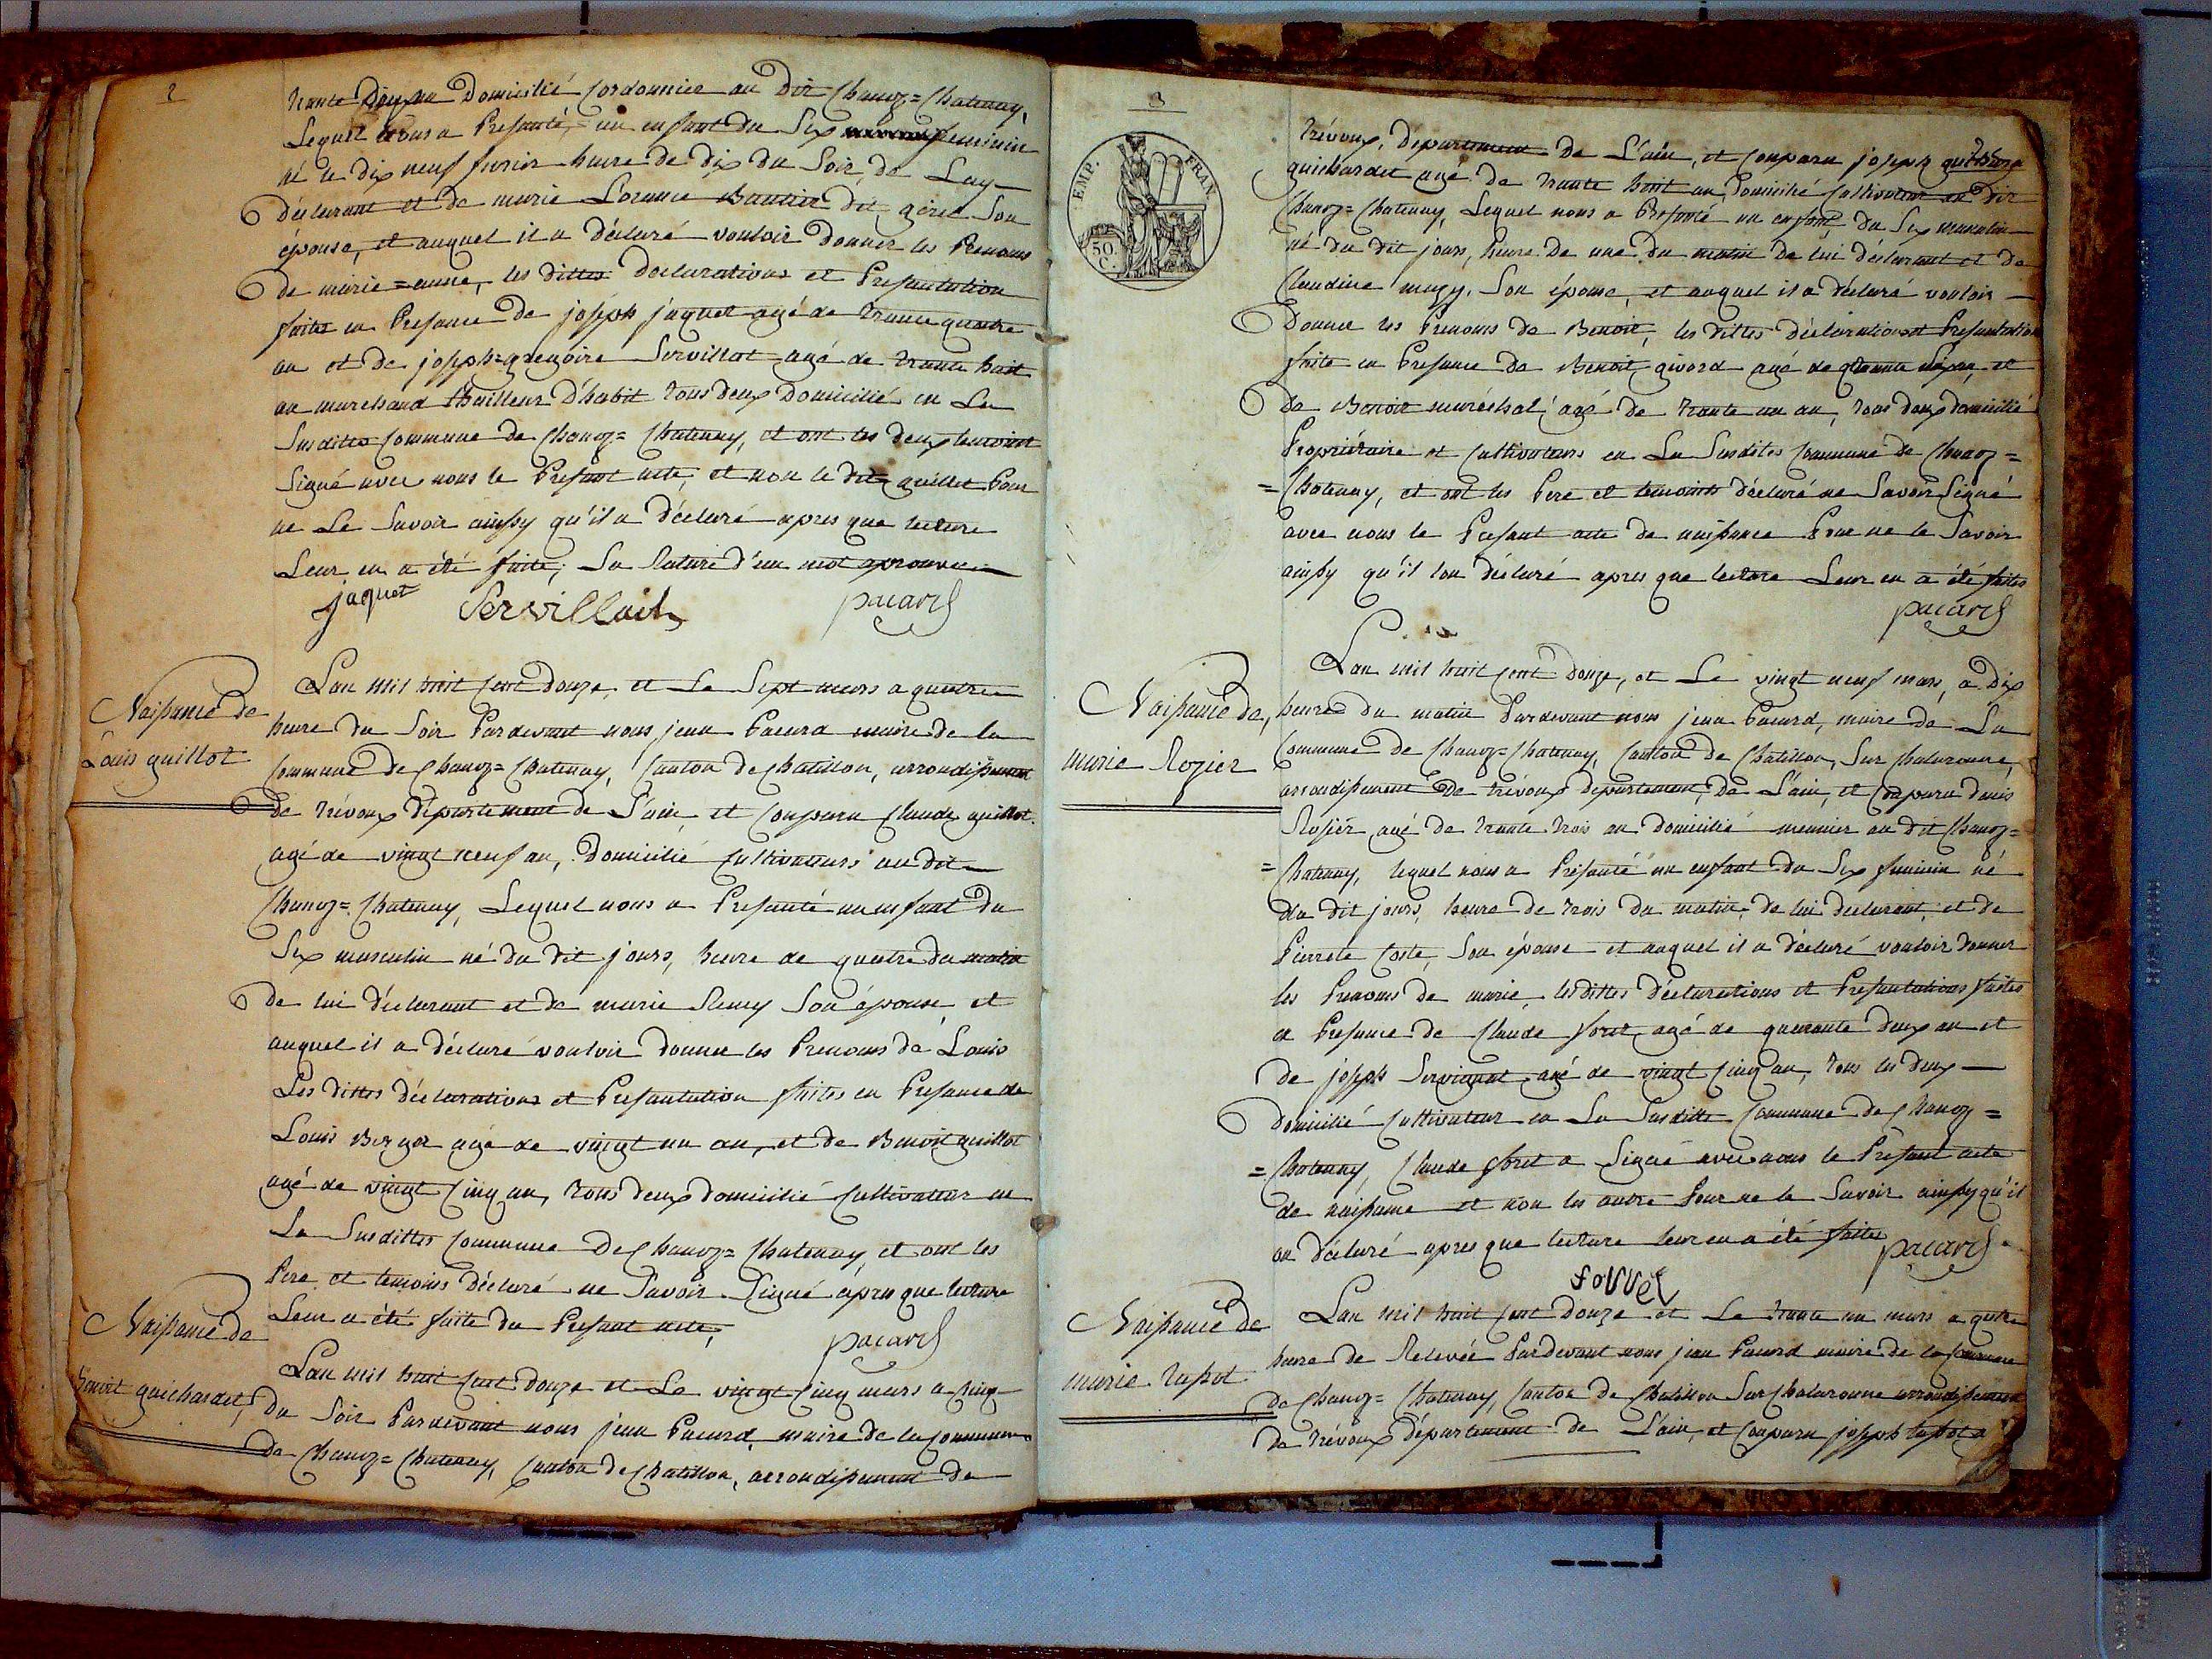 2
trante Domicilié Cordonnier au Dit Chanoz=Chatenay,
Lequel nous a Presanté, un enfant du Sex feminin
né le dix neuf fevrier heure de dix du Soir, de Luy
déclarant et de marie Lorance Bautier dit Son
épouse, et auquel il a déclaré vouloir donner les Prenoms
de marie=anne, les dittes declarations et Presantation
faites en Presance de joseph jaquet agé de trante quatre
an et de joseph=gregoire Servillat agé de trante huit
an marchand thailleur D'habit tous deux Domicilié en La
Susdittes Commune de Chanoz=Chatenay, et ont les deux temoins
Signé avec nous le Presant acte, et non le dit guillet Pour
ne Le Savoir ainssy qu'il a déclaré apres que lecture
Leur en a été faite, La Rature d'un mot aprouvé
jaquet Servillait pacard
Naissance de
Louis guillot
Lan mil huit Cent douze et Le Sept mars a quatre
heure du Soir Pardevant nous jean Pacard maire de la
Commune de Chanoz=Chatenay, Canton de Chatillon, arrondissement
de trévoux département de L'ain, et Comparu Claude guillot
agé de vingt neuf an, Domicilié Cultivateurs au dit
Chanoz=Chatenay, Lequel nous a Presanté un enfant du
Sex masculin né du dit jours, heure de quatre du matin
de lui déclarant et de marie Remy Son épouse, et
auquel il a déclaré vouloir donner les Prenoms de Louis
Les dittes déclarations et Presantation faites en Presance de
Louis Berger agé de vingt un an, et de Benoit guillot
agé de vingt Cinq an, tous deux domicilié Cultivateur en
La Susdittes Commune de Chanoz=Chatenay, et ont les
Pere et temoins déclaré ne Savoir Signé apres que lecture
Leur a été faite du Presant acte,
pacard
Naissance de
Benoit guichardet,
Lan mil huit Cent douze et Le vingt Cinq mars a Cinq
du Soir Pardevant nous jean Pacard, maire de la Commune
de Chanoz=Chatenay, Canton de Chatillon, arrondissement de
3
EMP. FRAN.
50
C.
trévoux, departement de L'ain, et Comparu joseph
guichardet agé de trante huit an, Domicilié Cultivateur au dit
Chanoz=Chatenay, Lequel nous a Presanté un enfant du Sex masculin
né du dit jours, heure de une du matin de lui déclarant et de
Claudine Son épouse, et auquel il a déclaré vouloir
Donner les Prenoms de Benoit, les dittes déclarations et Presantation
faite en Presance de Benoit givord agé de an, et
de Benoit maréchal agé de trante un an, tous deux domicilié
Propriétaire et Cultivateurs en La Susdites Commune de Chanoz=
=Chatenay, et ont les Pere et temoints déclaré ne Savoir Signé
avec nous le Presant acte de naissance Pour ne le Savoir
ainssy qu'il lon déclaré apres que lecture Leur en a été faites
pacard
Naissance de,
marie Rozier
Lan mil huit Cent douze, et Le vingt neuf mars, a dix
heures du matin Pardevant nous jean Pacard, maire de La
Commune de Chanoz=Chatenay, Canton de Chatillon, Sur Chalaronne
arrondissement de trévoux departement, de L'ain, et Comparu denis
Rosier, agé de trante trois an domicilié meunier au dit Chanoz=
=Chatenay, lequel nous a Présanté un enfant du Sex feminin né
du dit jours, heure de trois du matin, de lui declarant, et de
Pierrete Coste, Son épouse et auquel il a déclaré vouloir donner
les Prenoms de marie, les dittes déclarations et Presantations faites
en Presance de Claude foret agé de quarante deux an et
de joseph Servignat agé de vingt Cinq an, tous les deux
domicilié Cultivateur en La Susditte Commune de Chanoz=
=Chatenay, Claude foret a Signé avec nous le Présant acte
de naissance et non les autre Pour ne le Savoir ainssy qu'il
on déclaré apres que lecture leur en a été faites
pacard
forrel
Naissance de
marie
Lan mil huit Cent Douze et Le trante un mars a qatre
heure de Relevée Pardevant nous jean Pacard maire de la Commune
de Chanoz=Chatenay, Canton de Chatillon Sur Chalaronne arrondissement
de trévoux département de L'ain, et Comparu joseph